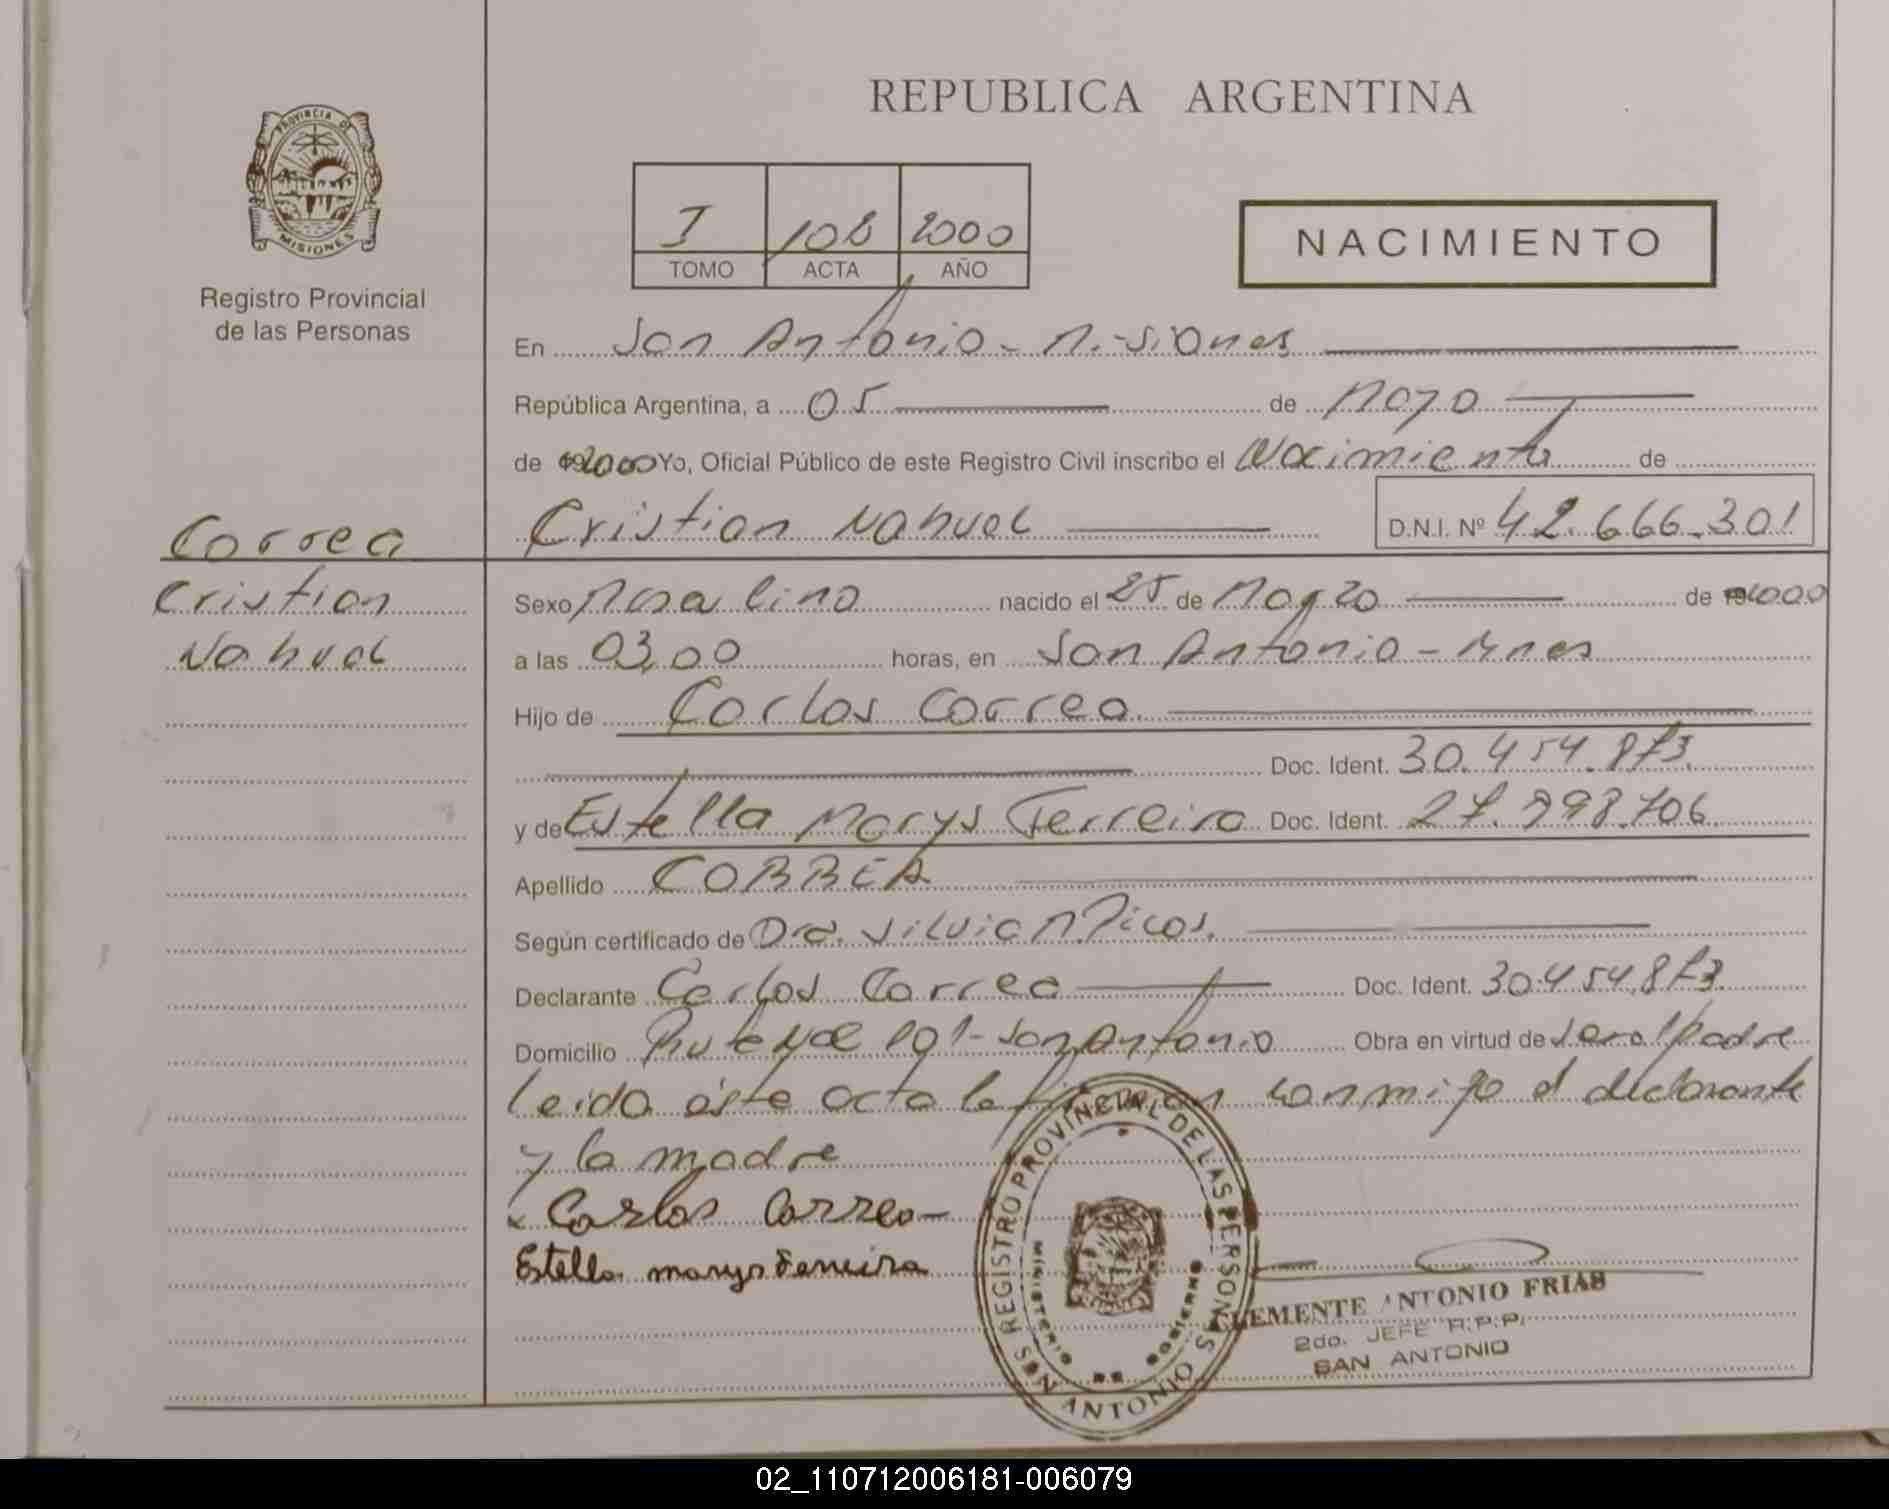 REPUBLICA ARGENTINA
PROVINCIA DE
MISIONES
Registro Provincial
de las Personas
I 108 2000
TOMO ACTA AÑO
NACIMIENTO
En San Antonio - Misiones
República Argentina, a 05 de Mayo
de 2000 Yo, Oficial Público de este Registro Civil inscribo el Nacimiento de
Correa
Cristian Nahuel D.N.I. Nº 42.666.301
Cristian
Nahuel
Sexo Masculino nacido el 25 de Marzo de 2000
a las 03,00 horas, en San Antonio - Mnes
Hijo de Carlos Correa
Doc. Ident. 30.454.873
y de Estella Marys Ferreira Doc. Ident. 27.998.706
Apellido CORREA
Según certificado de Dra. Silvia M. Picos.
Declarante Carlos Correa Doc. Ident. 30.454.873
Domicilio Ruta Nac 101 - San Antonio Obra en virtud de Ser el padre
Leida ésta acta la firman conmigo el declarante
y la madre
x Carlos Correa
Estella marys Ferreira
REGISTRO PROVINCIAL DE LAS PERSONAS
MINISTERIO DE GOBIERNO
SAN ANTONIO
CLEMENTE ANTONIO FRIAS
2do. JEFE R.P.P.
SAN ANTONIO
02_110712006181-006079